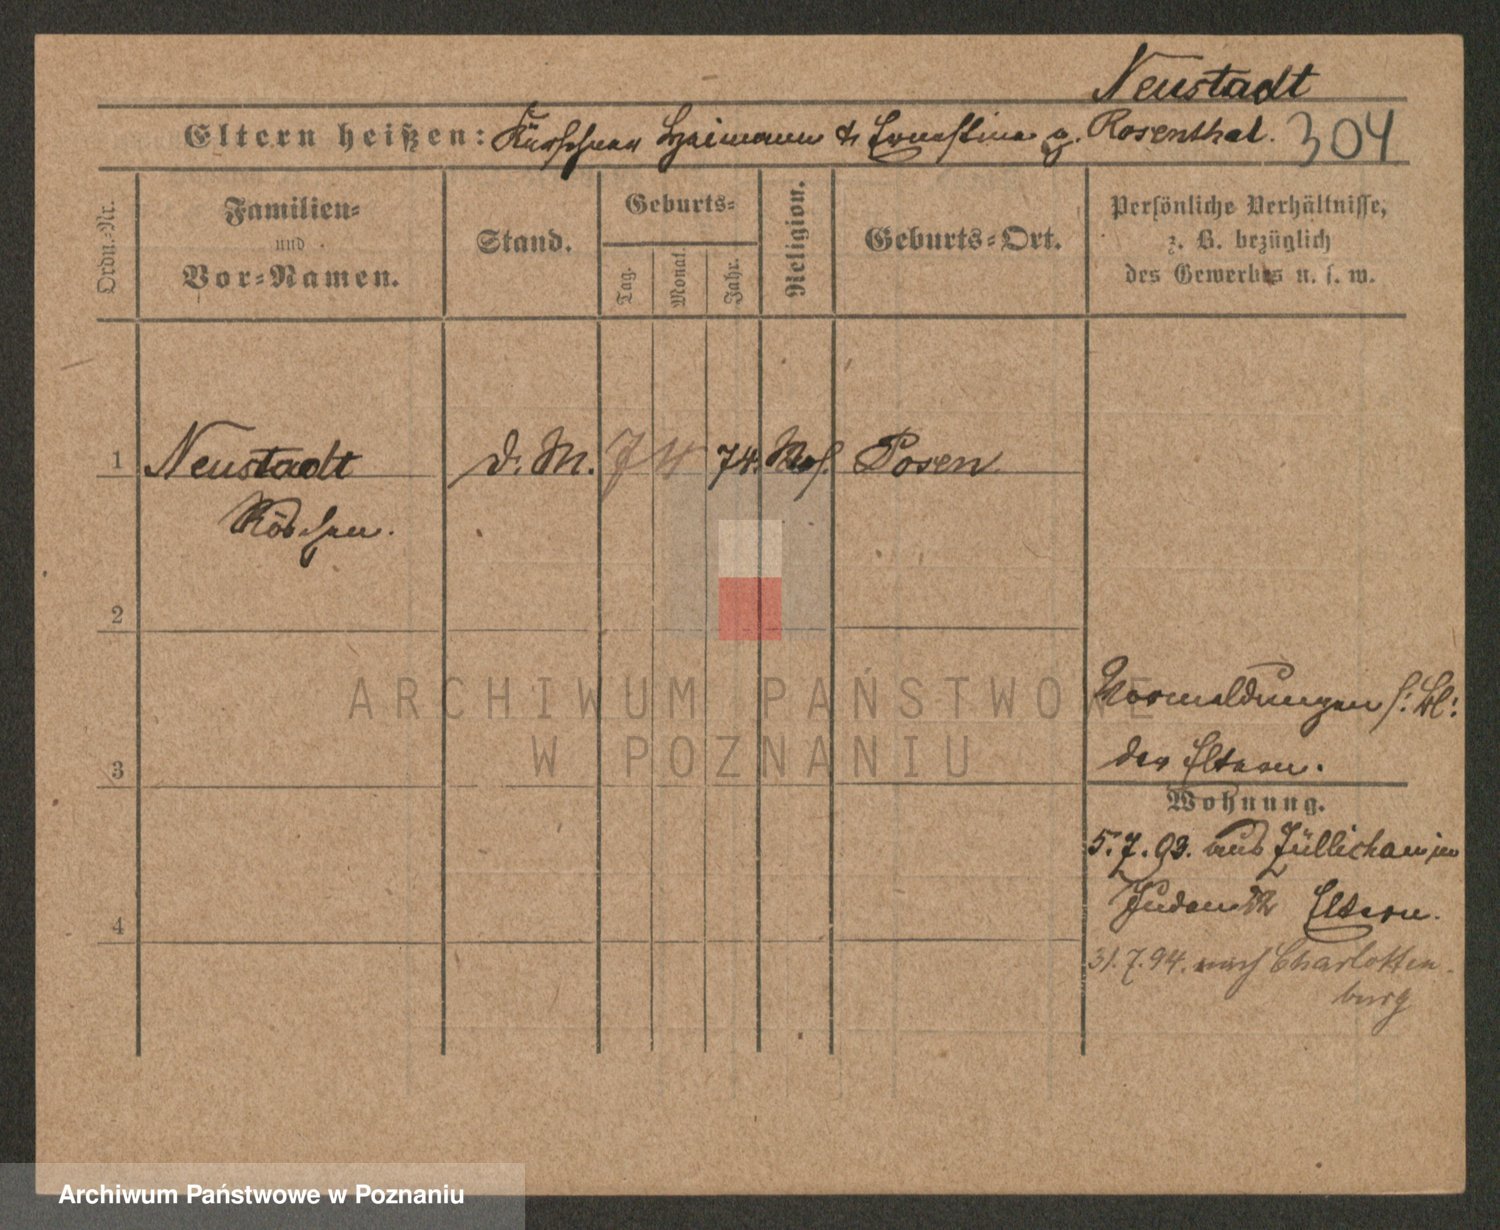 Neustadt
Eltern heißen: Kürschner Heimann & Ernestine g. Rosenthal. 304
Ordn.-Nr.
Familien-
und
Vor-Namen.
Stand.
Geburts-
Tag.
Monat.
Jahr.
Religion.
Geburts-Ort.
Persönliche Verhältnisse,
z. B. bezüglich
des Gewerbes u. s. w.
1 Neustadt d. M. 7 4 74. Mos. Posen
Röschen.
2
ARCHIWUM PAŃSTWOWE
W POZNANIU
Vormeldungen s: Bl:
der Eltern.
3
Wohnung.
5.7.93. aus Züllichau
Eltern.
4
31.7.94. nach Charlotten-
burg
Archiwum Państwowe w Poznaniu